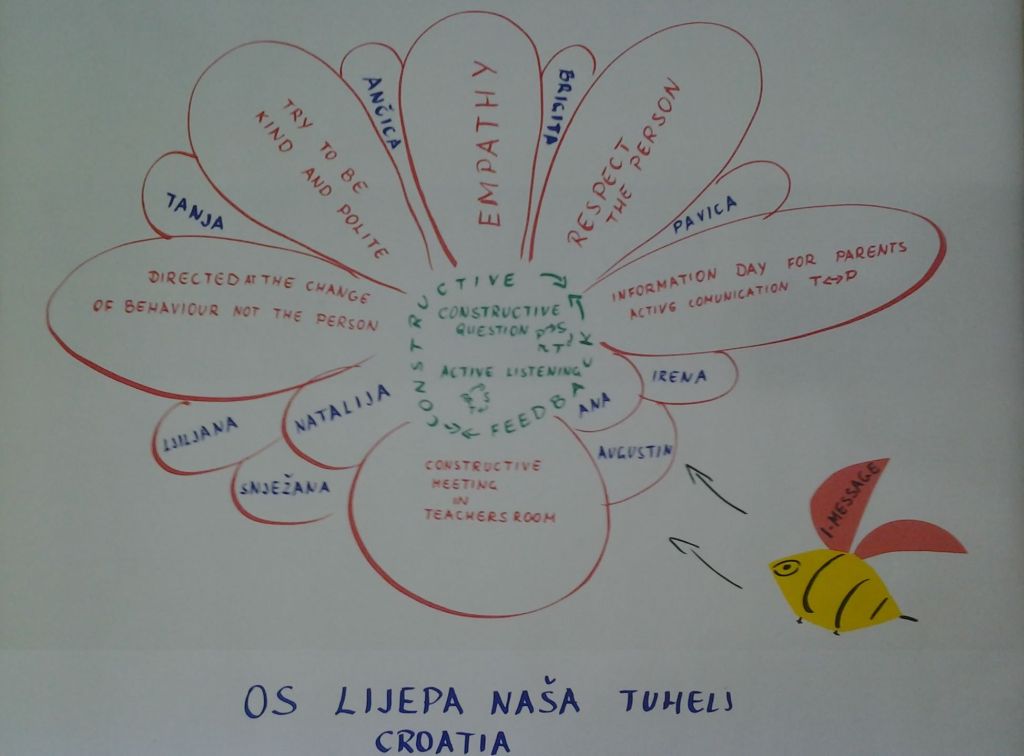 EMPATHY
ANČICA
BRIGITA
TRY TO BE
KIND AND POLITE
RESPECT
THE PERSON
TANJA
PAVICA
DIRECTED AT THE CHANGE
OF BEHAVIOUR NOT THE PERSON
INFORMATION DAY FOR PARENTS
ACTIVE COMUNICATION T↔P
CONSTRUCTIVE
FEEDBACK
CONSTRUCTIVE
QUESTION
ACTIVE LISTENING
IRENA
ANA
AUGUSTIN
NATALIJA
LJILJANA
SNJEŽANA
CONSTRUCTIVE
MEETING
IN
TEACHERS ROOM
I-MESSAGE
OS LIJEPA NAŠA TUHELJ
CROATIA